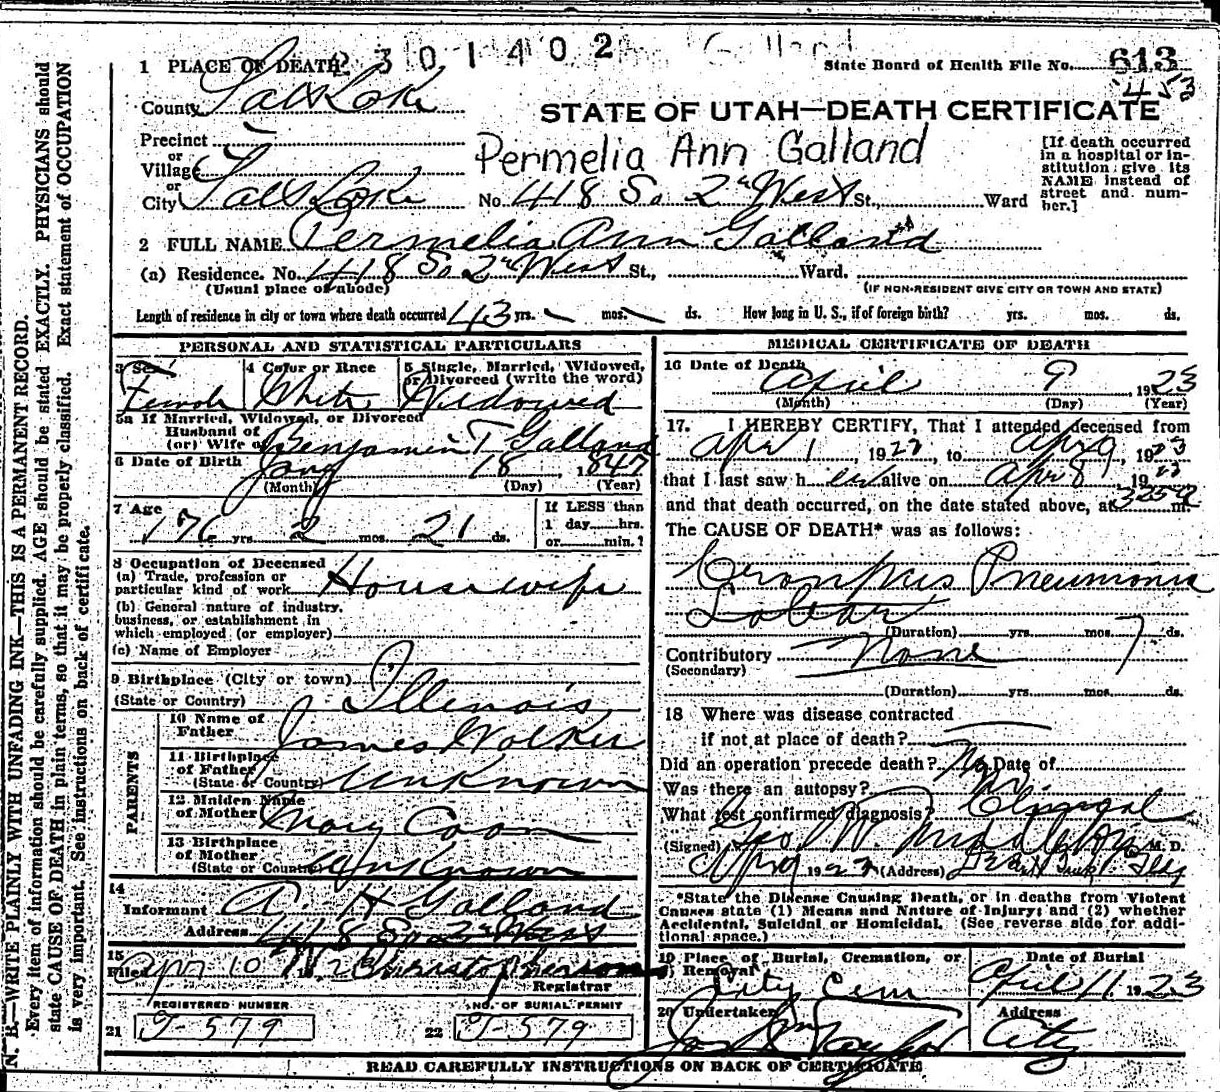 2301402 Galland
1 PLACE OF DEATH
State Board of Health File No. 613
453
County Salt Lake
STATE OF UTAH—DEATH CERTIFICATE
Precinct
or
Village
or
City Salt Lake
Permelia Ann Galland
No. 418 So 2nd West St., Ward
[If death occurred
in a hospital or in-
stitution give its
NAME instead of
street and num-
ber.]
2 FULL NAME Permelia Ann Galland
(a) Residence. No. 418 So 2nd West St., Ward.
(Usual place of abode) (IF NON-RESIDENT GIVE CITY OR TOWN AND STATE)
Length of residence in city or town where death occurred 43 yrs. — mos. — ds. How long in U. S., if of foreign birth? yrs. mos. ds.
PERSONAL AND STATISTICAL PARTICULARS
3 Sex 4 Color or Race 5 Single, Married, Widowed,
or Divorced (write the word)
Female White Widowed
5a If Married, Widowed, or Divorced
Husband of
(or) Wife of Benjamin T. Galland
6 Date of Birth Jany 18, 1847
(Month) (Day) (Year)
7 Age 76 yrs. 2 mos. 21 ds.
If LESS than
1 day hrs.
or min.?
8 Occupation of Deceased
(a) Trade, profession or
particular kind of work Housewife
(b) General nature of industry,
business, or establishment in
which employed (or employer)
(c) Name of Employer
9 Birthplace (City or town)
(State or Country) Illinois
PARENTS
10 Name of
Father James Walker
11 Birthplace
of Father
(State or Country) Unknown
12 Maiden Name
of Mother Mary Coon
13 Birthplace
of Mother
(State or Country) Unknown
14
Informant A. H. Galland
Address 418 So 2nd West
15
Filed Apr 10
Registrar
REGISTERED NUMBER NO. OF BURIAL PERMIT
21 J-579 22 J-579
MEDICAL CERTIFICATE OF DEATH
16 Date of Death April 9 1923
(Month) (Day) (Year)
17. I HEREBY CERTIFY, That I attended deceased from
Apr 1, 1923, to Apr 9, 1923
that I last saw her alive on Apr 8, 19
and that death occurred, on the date stated above, at m.
The CAUSE OF DEATH* was as follows:
Croupous Pneumonia
Lobar
(Duration) yrs. mos. 7 ds.
Contributory None
(Secondary)
(Duration) yrs. mos. ds.
18 Where was disease contracted
if not at place of death?
Did an operation precede death? No Date of
Was there an autopsy? No
What test confirmed diagnosis? Clinical
(Signed) Geo W. Middleton, M. D.
Apr 9 1923 (Address)
*State the Disease Causing Death, or in deaths from Violent
Causes state (1) Means and Nature of Injury; and (2) whether
Accidental, Suicidal or Homicidal. (See reverse side for addi-
tional space.)
19 Place of Burial, Cremation, or Date of Burial
Removal
City Cem April 11 1923
20 Undertaker Address
Taylor City
READ CAREFULLY INSTRUCTIONS ON BACK OF CERTIFICATE
N. B.—WRITE PLAINLY WITH UNFADING INK—THIS IS A PERMANENT RECORD.
Every item of information should be carefully supplied. AGE should be stated EXACTLY. PHYSICIANS should
state CAUSE OF DEATH in plain terms, so that it may be properly classified. Exact statement of OCCUPATION
is very important. See instructions on back of certificate.